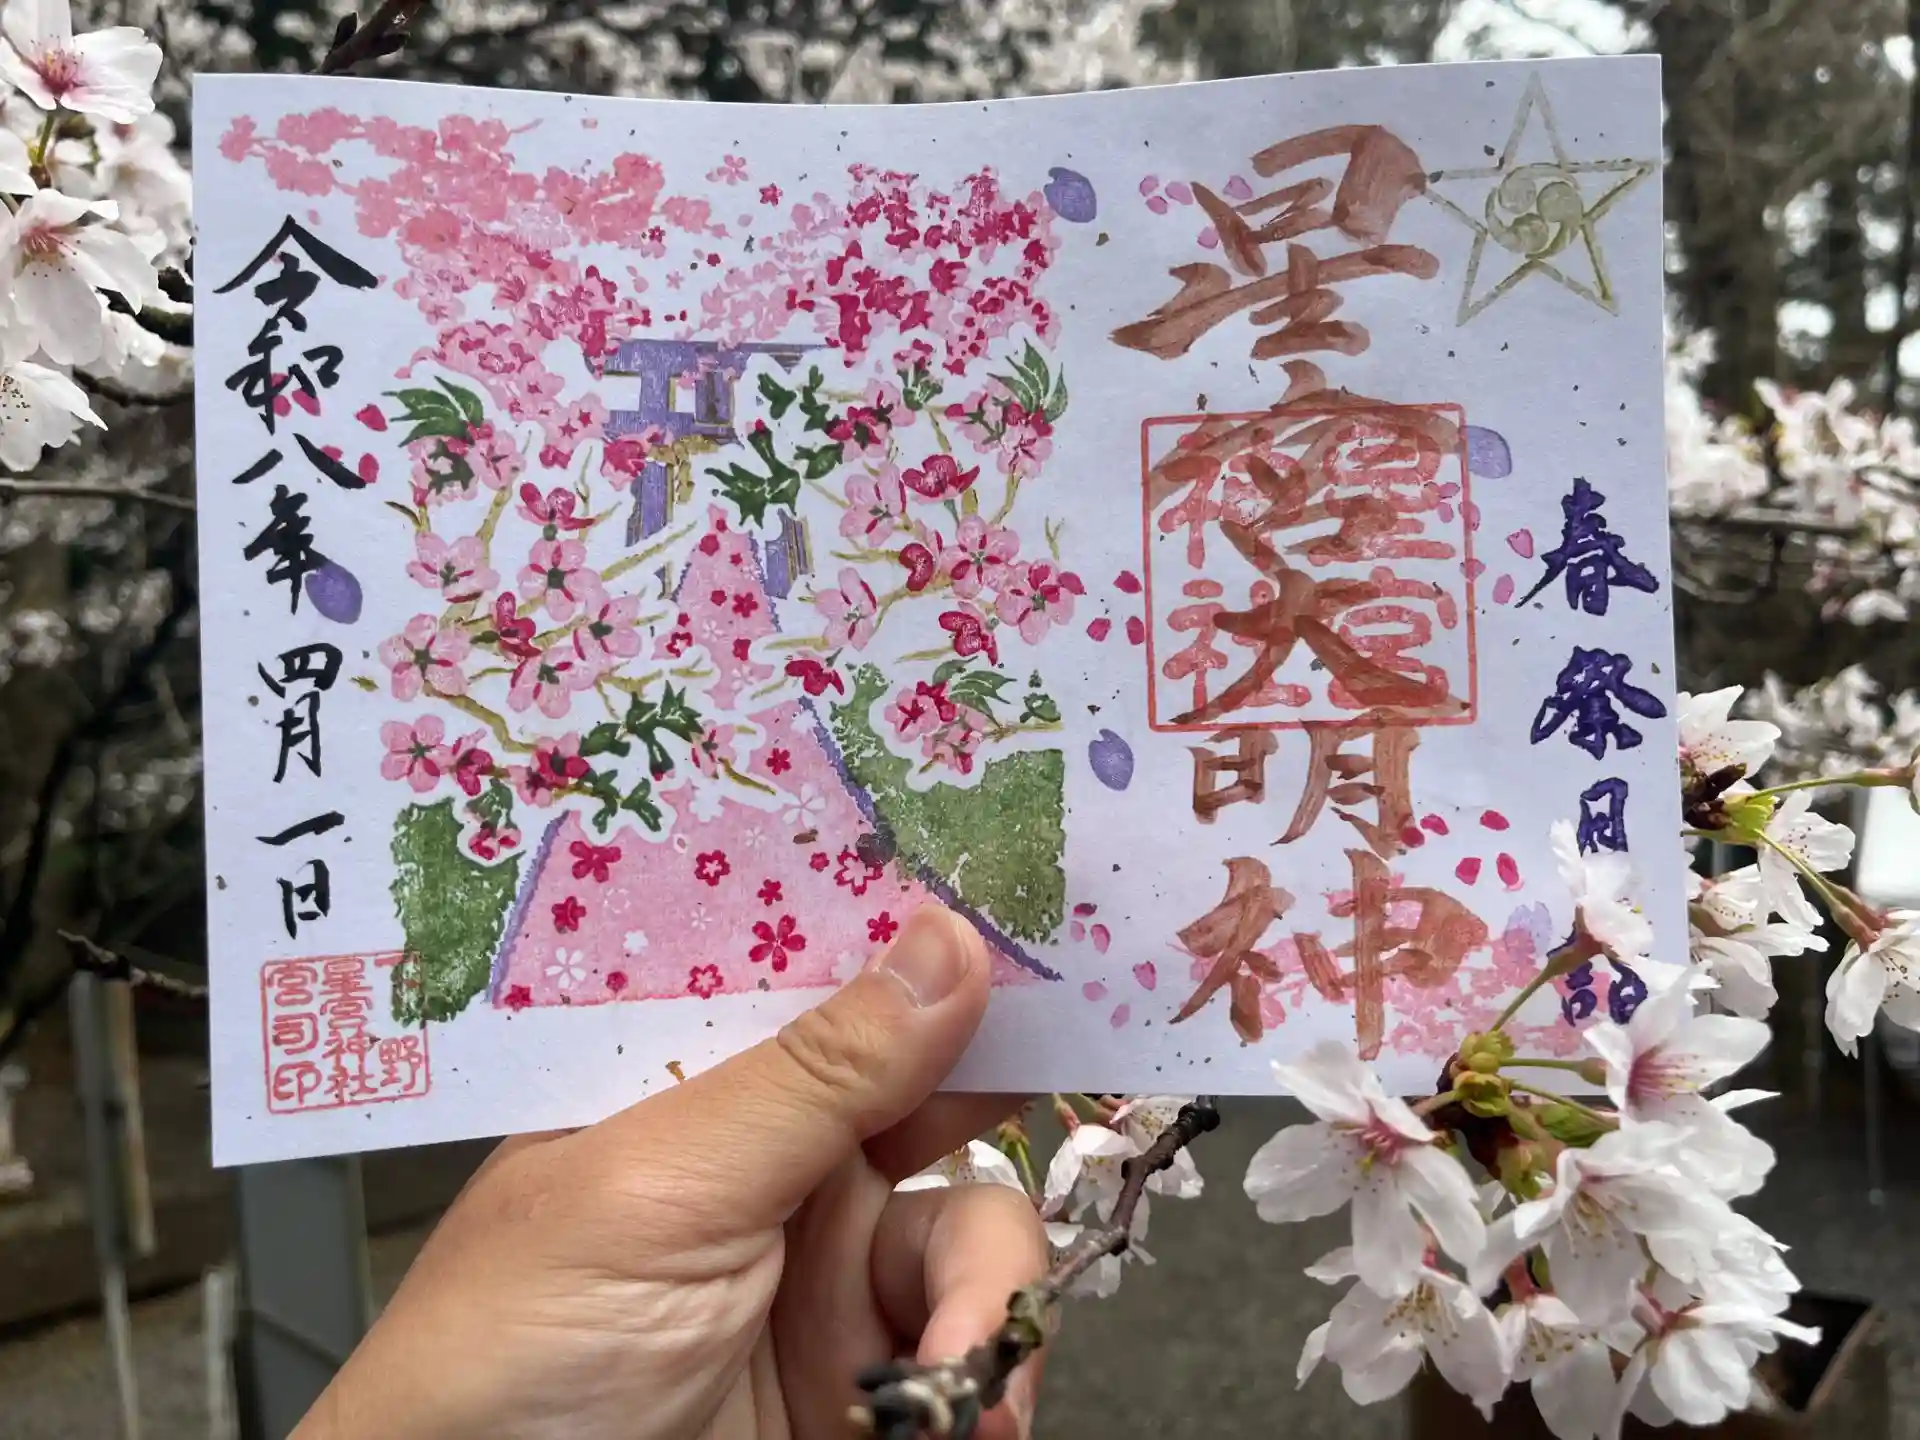 春祭月詣
星宮大明神
星宮
神社
令和八年四月一日
下野
星宮神社
宮司印